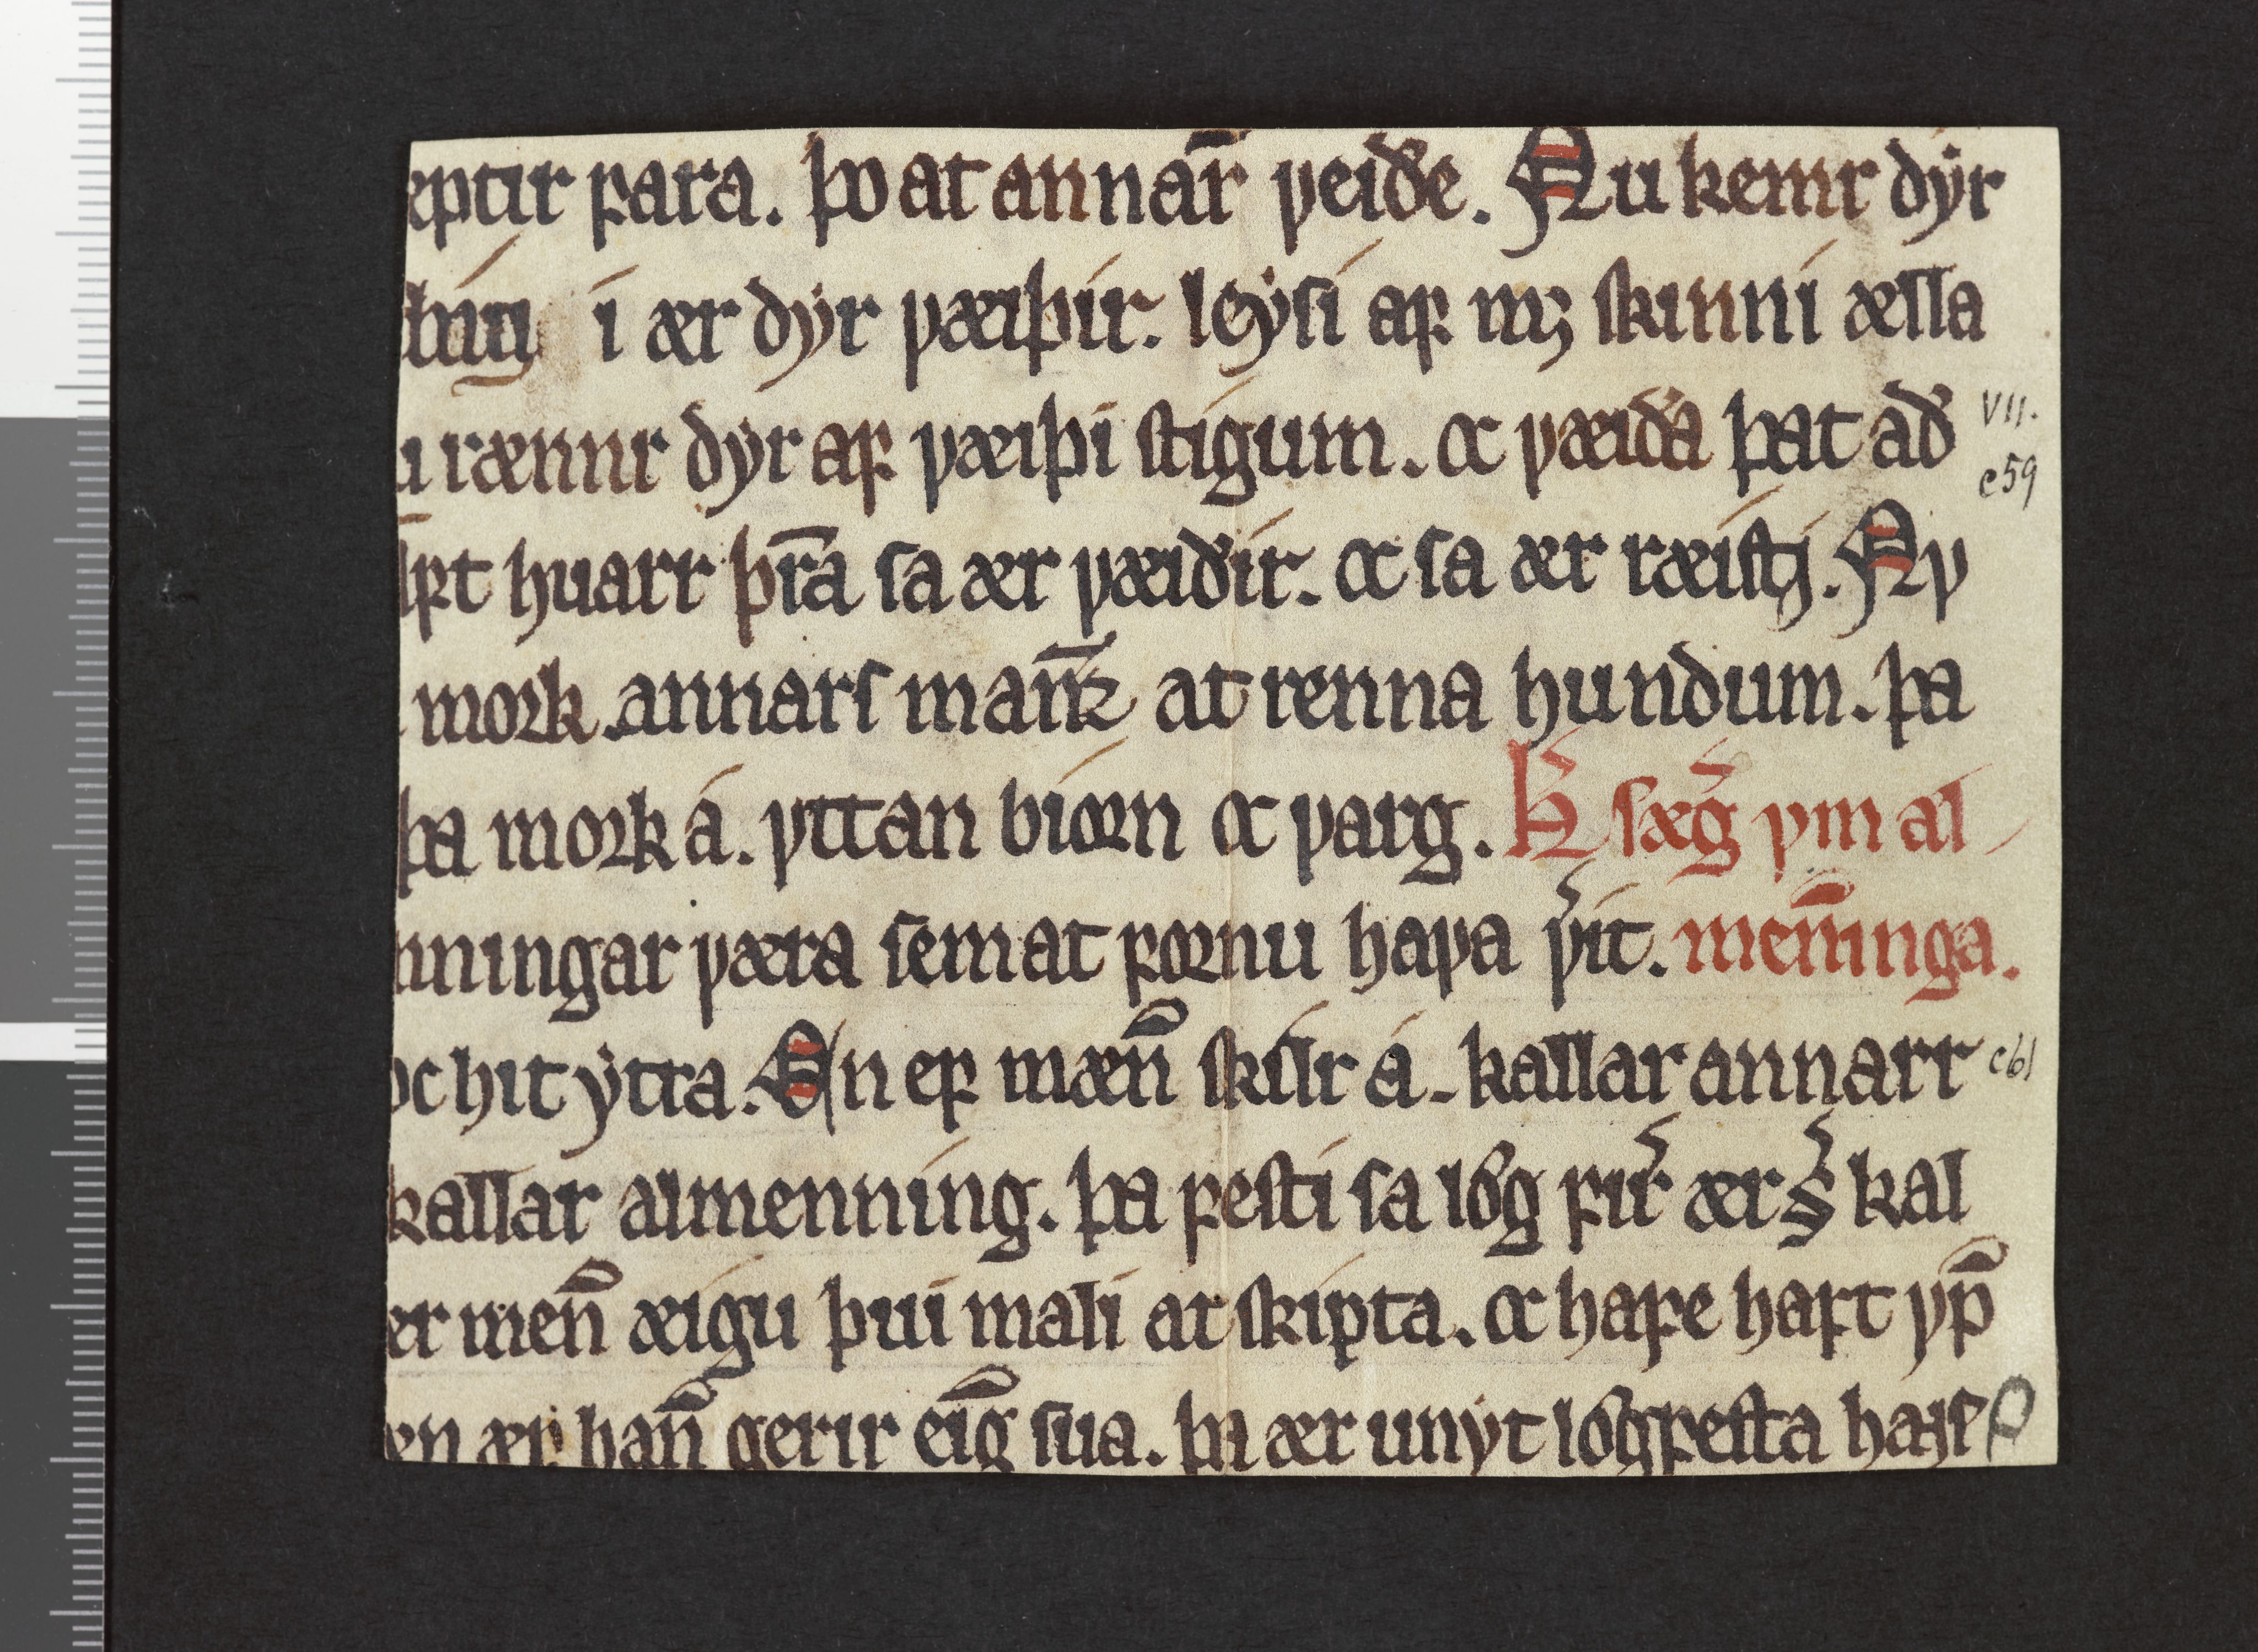 eptir ꝼara. þo at annar̅ ỿeiðe. Nu kemr dẏr
i ær dẏr ỿæiþir. lẏsi aꝼ mꝫ skinni ælla
u rænnr dẏr aꝼ ỿæiþi stigum. oc ỿæiða þat að
ꝼt huarr þr̅a sa ær ỿæiðir. oc sa ær ræisti. Nỿ
moꝛk. annars man̅z at renna hundum. þa
þa moꝛk á. ỿttan bioꝛn oc ỿarg. H sæg͛ ỿm al-
nningar ỿæra sem at ꝼoꝛnu haỿa ỿ͛it. men̅inga.
oc hit ẏtra. En eꝼ mæn̅ skilr á. kallar annarr
kallar almenning. þa ꝼesti sa lôg ꝼir͛ ær s͛ kal
er men̅ æigu þui mali at skipta. oc haꝼe haꝼt ỿp̅
en ær han̅ gerir eig̅ sua. þa ær unẏt lôgꝼesta hans
VII.
c59
c61